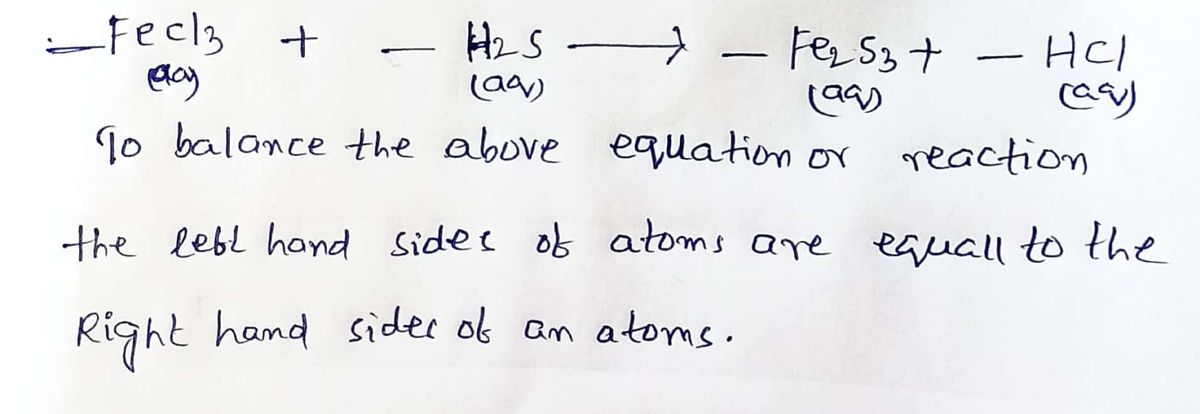 — FeCl3 + — H2S → — Fe2S3 + — HCl
(aq) (aq) (aq) (aq)
To balance the above equation or reaction
the left hand sides of atoms are equall to the
Right hand sides of an atoms.